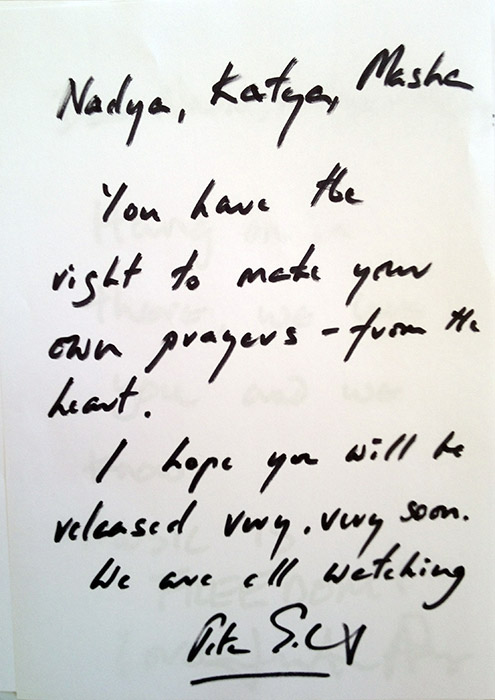 Nadya, Katya, Masha
You have the
right to make your
own prayers - from the
heart.
I hope you will be
released very, very soon.
We are all watching